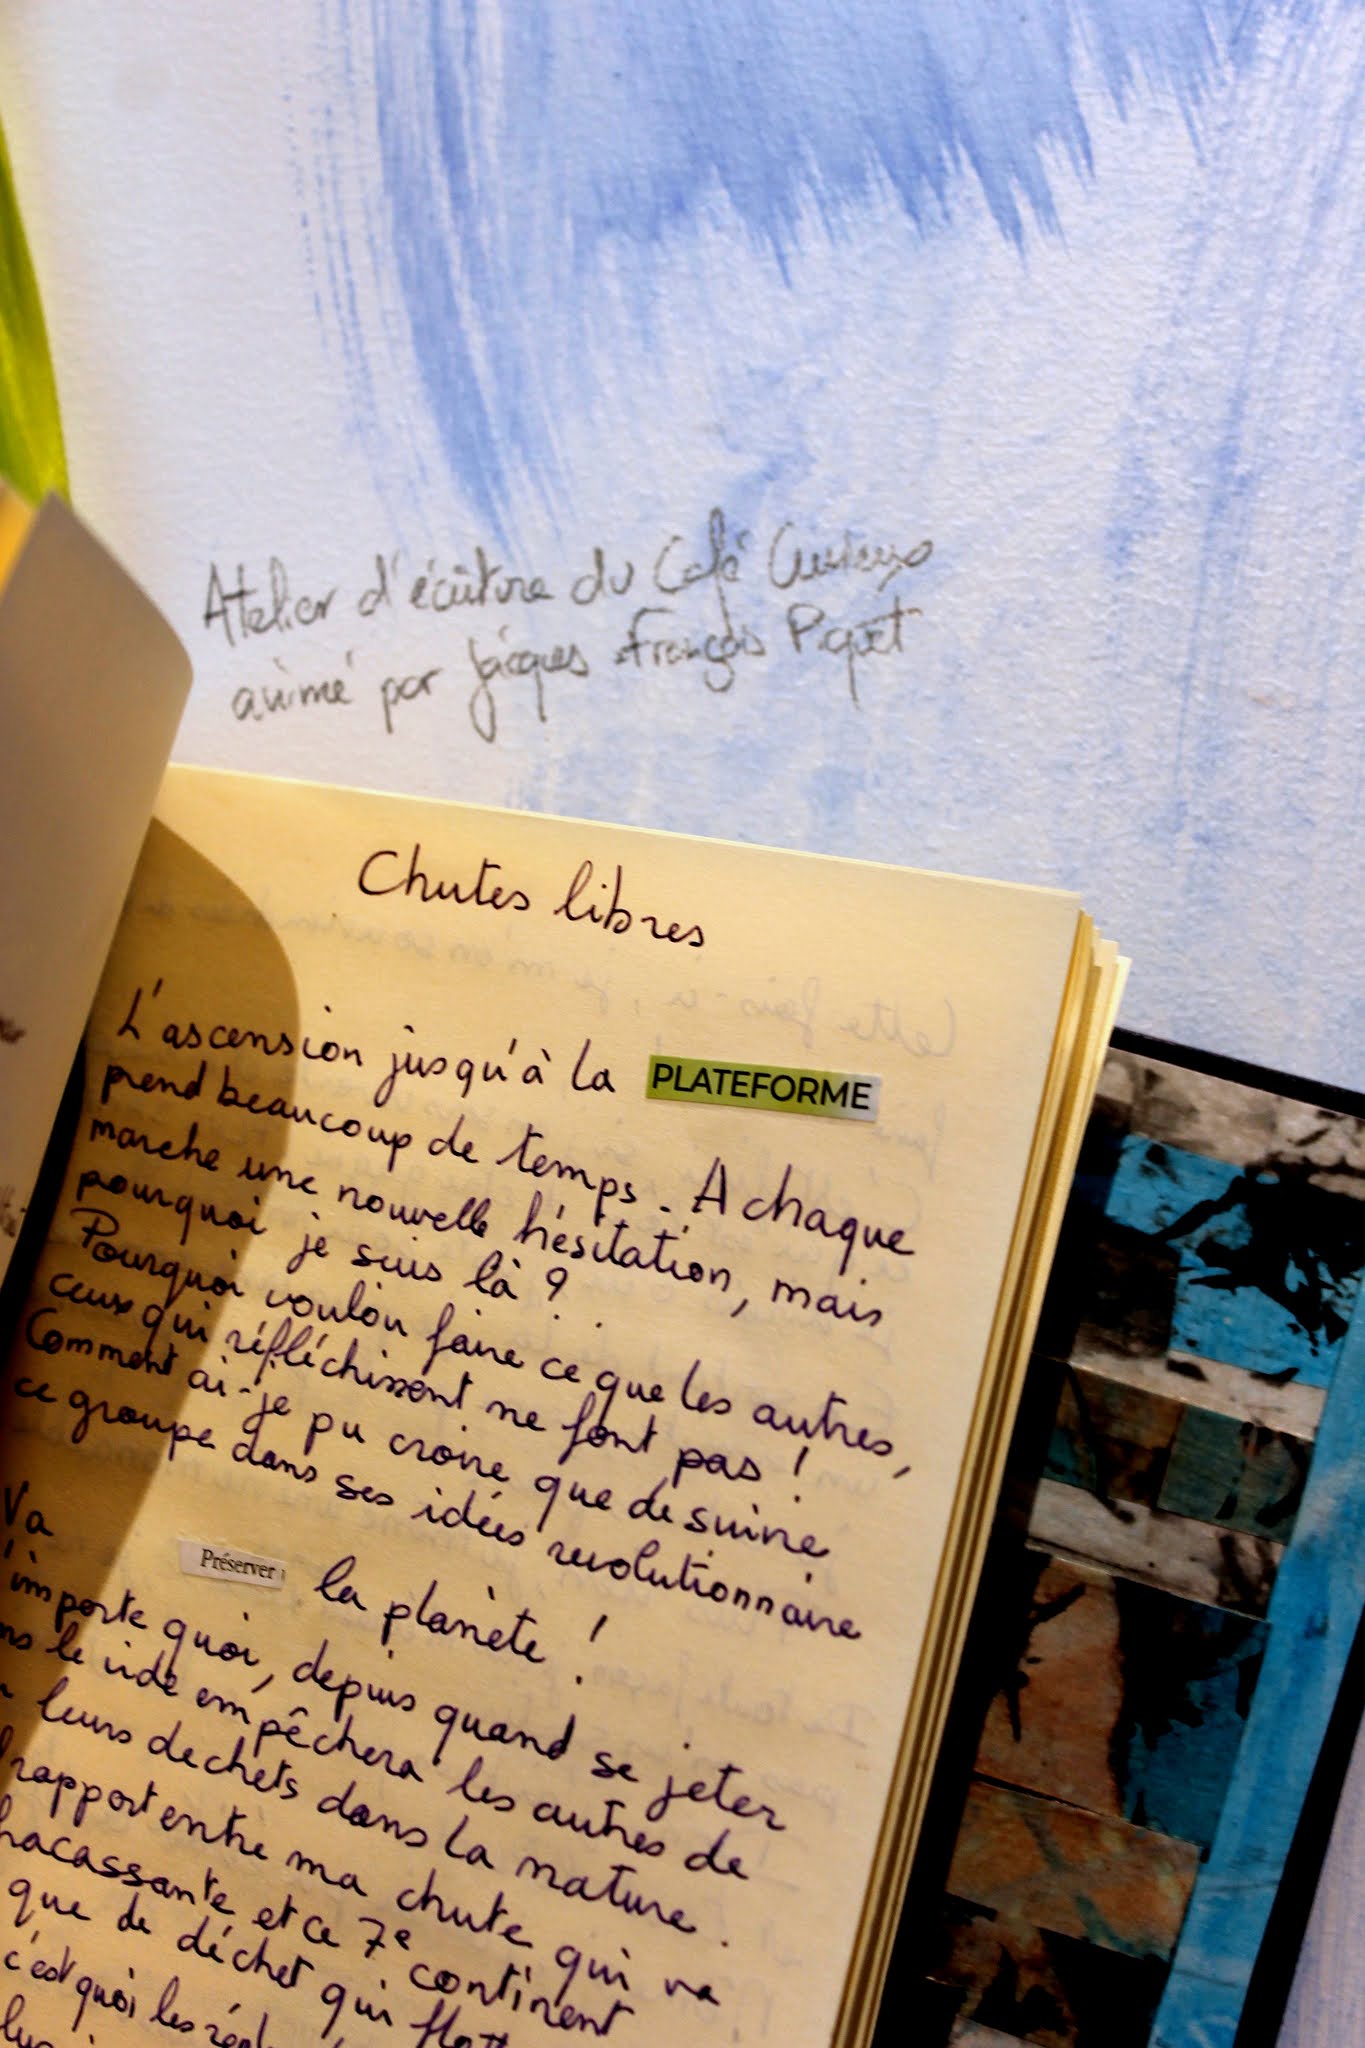 Atelier d'écriture du Café Curieux
animé par Jacques François Piquet
Chutes libres
L'ascension jusqu'à la PLATEFORME
prend beaucoup de temps. A chaque
marche une nouvelle hésitation, mais
pourquoi je suis là ?
Pourquoi vouloir faire ce que les autres,
ceux qui réfléchissent ne font pas !
Comment ai-je pu croire que de suivre
ce groupe dans ses idées revolutionnaire
Va
Préserver la planète !
importe quoi, depuis quand se jeter
le vide empêchera les autres de
leurs dechets dans la nature.
rapport entre ma chute qui va
fracassante et ce 7e continent
que de déchet qui
c'est quoi les